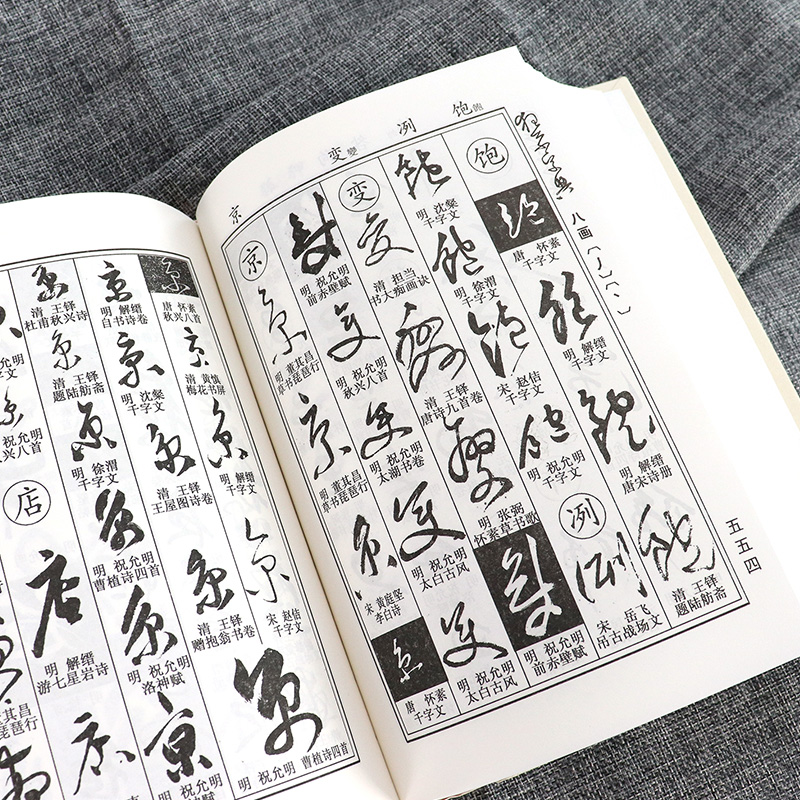 狂草字典 八画〔丿〕〔丶〕
五五四
饱飽
冽
变變
京
饱
唐 怀素
千字文
明 解缙
千字文
明 解缙
唐宋诗册
清 王铎
题陆舫斋
明 沈粲
千字文
明 徐渭
千字文
宋 赵佶
千字文
明 祝允明
千字文
冽
宋 岳飞
吊古战场文
变
清 担当
书大痴画诀
清 王铎
唐诗九首卷
明 张弼
怀素草书歌
明 祝允明
前赤壁赋
明 祝允明
前赤壁赋
明 祝允明
秋兴八首
明 祝允明
太湖书卷
明 祝允明
太白古风
明 祝允明
太白古风
京
明 董其昌
草书琵琶行
明 董其昌
草书琵琶行
宋 黄庭坚
李白诗
唐 怀素
千字文
唐 怀素
秋兴八首
清 黄慎
梅花书屏
明 解缙
千字文
宋 赵佶
千字文
明 祝允明
曹植诗四首
明 解缙
自书诗卷
明 沈粲
千字文
清 王铎
王屋图诗卷
清 王铎
赠抱翁书卷
清 王铎
杜甫秋兴诗
清 王铎
题陆舫斋
明 徐渭
千字文
明 祝允明
曹植诗四首
明 祝允明
洛神赋
允明
字文
祝允明
秋兴八首
店
明 解缙
游七星岩诗
董其昌
琵琶行